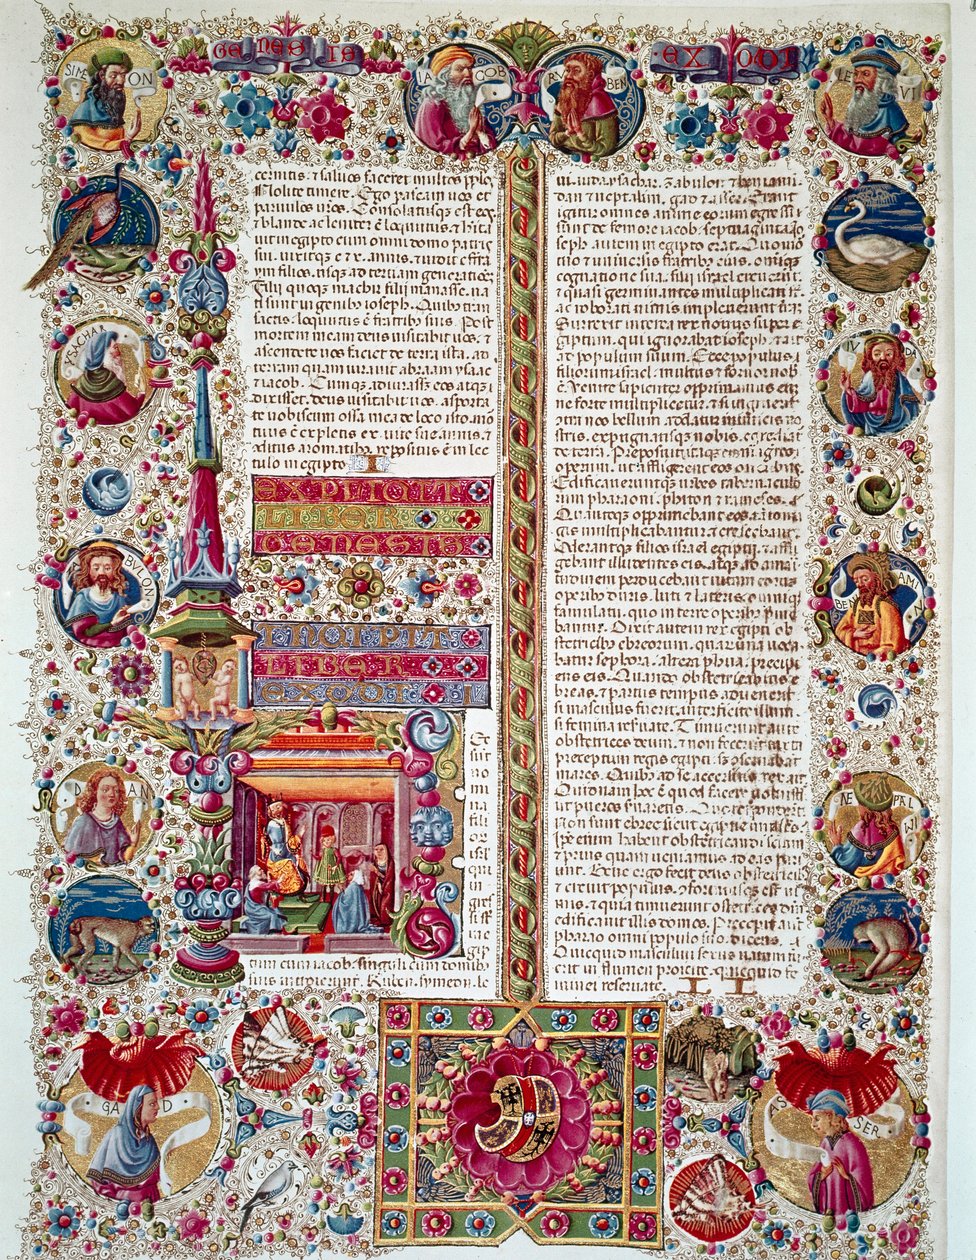 GENESIS
IACOB
RUBEN
EXODI
SIMEON
LEVI
YSACHAR
IVDA
ZABVLON
BENIAMIN
DAN
NEPTALIM
GAD
ASSER
cernitis. & salvos faceret multos pplos
Nolite timere. Ego pascam vos et
parvulos vros. Consolatusq; est eos
& blande ac leniter ē locutus. & habita
vit in egipto cum omni domo patris
sui. vixitq; c & x. annis. & vidit effra
ym filios. usq; ad tertiam generationē.
Filii quoq; machir filii manasse. na
ti sunt in genibus ioseph. Quibus tran
sactis. locutus ē fratribus suis. Post
mortem meam deus visitabit vos. &
ascendere vos faciet de terra ista. ad
terram quam iuravit abraam ysaac
& iacob. Cumq; adiurasset eos atq;
dixisset. deus visitabit vos. asporta
te vobiscum ossa mea de loco isto. mor
tuus ē expletis cx. vite sue annis. &
conditus aromatibus. repositus ē in loc
culo in egipto
EXPLICIT
LIBER
GENESIS
INCIPIT
LIBER
EXODI
sunt
no
mi
na
fili
or
isrl
qui
in
gressi
sunt
cum iacob. singuli cum domibus
suis introierunt. Ruben. symeon. le
vi. iuda. ysachar. zabulon & beniamin
dan & neptalim. gad & aser. Erant
igitur omnes anime eorum q egressi
sunt de femore iacob. septuaginta. Io
seph autem in egipto erat. Quo mor
tuo & universis fratribus eius. omniq;
cognatione sua. filii israel creverunt.
& quasi germinantes multiplicati sunt.
ac roborati nimis impleverunt terrā.
Surrexit interea rex novus super e
giptum. qui ignorabat ioseph. & ait
ad populum suum. Ecce populus
filiorum israel. multus & fortior nob
ē. Venite sapienter opprimamus eum
ne forte multiplicetur. & si ingruerit
contra nos bellum. addatur inimicis
nostris. expugnatisq; nobis. egrediatur
de terra. Preposuit itaq; eis magistros
operum. ut affligerent eos oneribus.
Edificaveruntq; urbes tabernaculo
rum pharaoni. phiton & ramesses.
Quantoq; opprimebant eos. tanto ma
gis multiplicabantur. & crescebant.
Oderantq; filios israel egiptii. & affli
gebant illudentes eis. atq; ad amari
tudinem perducebant vitam eorum
operibus duris. luti & lateris. omniq;
famulatu. quo in terre operibus preme
bantur. Dixit autem rex egipti ob
stetricibus ebreorum. quarum una voca
batur sephora. altera phua. precipi
ens eis. Quando obstetricabitis e
breas. & partus tempus advenerit.
si masculus fuerit. interficite illum.
si femina reservate. Timuerunt aut
obstetrices deum. & non fecerunt iuxta
preceptum regis egipti. sed conservabant
mares. Quibus ad se accersitis. rex ait.
Quidnam hoc ē quod facere voluistis
ut pueros servaretis. Que responderunt
Non sunt ebree sicut egiptie mulieres.
Ipse enim habent obstetricandi scientiam
& prius quam veniamus ad eas pari
unt. Bene ergo fecit deus obstetricibus
& crevit populus. & confortatusq; est ni
mis. & quia timuerunt obstetrices deum
edificavit illis domos. Precepit autem
pharao omni populo suo. dicens.
Quicquid masculini sexus natum fu
erit in flumen proicite. quicquid fe
minei reservate.